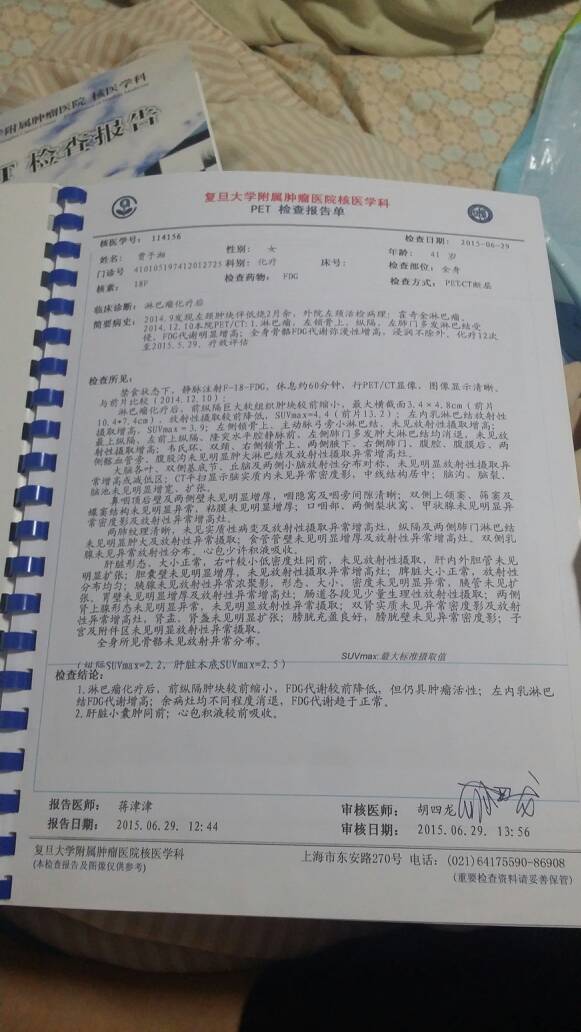 附属肿瘤医院 核医学科
T 检查报告
复旦大学附属肿瘤医院核医学科
PET 检查报告单
核医学号: 114156 检查日期: 2015-06-29
姓名: 贾予湘 性别: 女 年龄: 41 岁
门诊号 410105197412012725 科别: 化疗 床号: 检查部位: 全身
核素: 18F 检查药物: FDG 检查方式: PET.CT断层
临床诊断: 淋巴瘤化疗后
简要病史: 2014.9发现左颈肿块伴低烧2月余, 外院左颈活检病理: 霍奇金淋巴瘤。
2014.12.10本院PET/CT:1.淋巴瘤, 左锁骨上、纵隔、左肺门多发淋巴结受
侵, FDG代谢明显增高; 全身骨骼FDG代谢弥漫性增高, 浸润不除外, 化疗12次
至2015.5.29, 疗效评估
检查所见:
禁食状态下, 静脉注射F-18-FDG, 休息约60分钟, 行PET/CT显像, 图像显示清晰。
与前片比较(2014.12.10):
淋巴瘤化疗后, 前纵隔巨大软组织肿块较前缩小, 最大横截面3.4×4.8cm(前片
10.4*7.4cm), 放射性摄取较前降低, SUVmax=4.4(前片13.2); 左内乳淋巴结放射性
摄取增高, SUVmax=3.9; 左侧锁骨上、主动脉弓旁小淋巴结, 未见放射性摄取增高;
最上纵隔、左前上纵隔、隆突水平腔静脉前、左侧肺门多发肿大淋巴结均消退, 未见放
射性摄取增高。韦氏环、双颈、右侧锁骨上、两侧腋下、右侧肺门、腹腔、腹膜后、两
侧髂血管旁、腹股沟未见明显肿大淋巴结及放射性摄取异常增高灶。
大脑各叶、双侧基底节、丘脑及两侧小脑放射性分布对称, 未见明显放射性摄取异
常增高或减低区; CT平扫显示脑实质内未见异常密度影, 中线结构居中; 脑沟、脑裂、
脑池未见明显增宽、扩张。
鼻咽顶后壁及两侧壁未见明显增厚, 咽隐窝及咽旁间隙清晰; 双侧上颌窦、筛窦及
蝶窦结构未见异常, 粘膜未见明显增厚; 口咽部、两侧梨状窝、甲状腺未见明显异
常密度影及放射性异常增高灶。
两肺纹理清晰, 未见实质性病变及放射性摄取异常增高灶, 纵隔及两侧肺门淋巴结
未见明显肿大及放射性异常摄取; 食管管壁未见明显增厚及放射性异常增高灶。双侧乳
腺未见异常放射性分布。心包少许积液吸收。
肝脏形态、大小正常, 右叶较小低密度灶同前, 未见放射性摄取, 肝内外胆管未见
明显扩张; 胆囊壁未见明显增厚, 未见放射性摄取异常增高灶; 脾脏大小正常, 放射性
分布均匀; 胰腺未见放射性异常浓聚影, 形态、大小、密度未见明显异常, 胰管未见扩
张。胃壁未见明显增厚及放射性异常增高灶; 肠道各段见少量生理性放射性摄取; 两侧
肾上腺形态未见明显异常, 未见明显放射性异常摄取; 双肾实质未见异常密度影及放射
性异常增高灶, 肾盂、肾盏未见明显扩张; 膀胱充盈良好, 膀胱壁未见异常密度影; 子
宫及附件区未见明显放射性异常摄取。
全身所见骨骼未见放射异常分布。
SUVmax:最大标准摄取值
(纵隔SUVmax=2.2, 肝脏本底SUVmax=2.5)
检查结论:
1.淋巴瘤化疗后, 前纵隔肿块较前缩小, FDG代谢较前降低, 但仍具肿瘤活性; 左内乳淋巴
结FDG代谢增高; 余病灶均不同程度消退, FDG代谢趋于正常。
2.肝脏小囊肿同前; 心包积液较前吸收。
报告医师: 蒋津津 审核医师: 胡四龙
报告日期: 2015.06.29. 12:44 审核日期: 2015.06.29. 13:56
复旦大学附属肿瘤医院核医学科 上海市东安路270号 电话: (021)64175590-86908
(本检查报告及图像仅供参考) (重要检查资料请妥善保管)